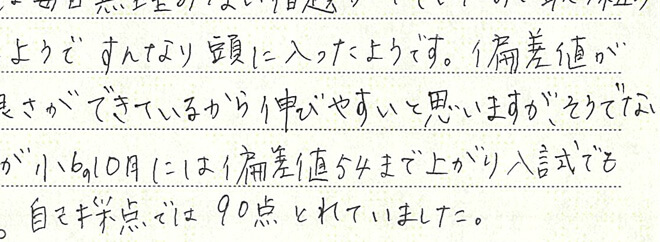 毎日無理のない宿題
ようで すんなり頭に入ったようです。偏差値が
良さができているから伸びやすいと思いますが、そうでない
が小6の10月には偏差値54まで上がり入試でも
。自己採点では90点とれていました。